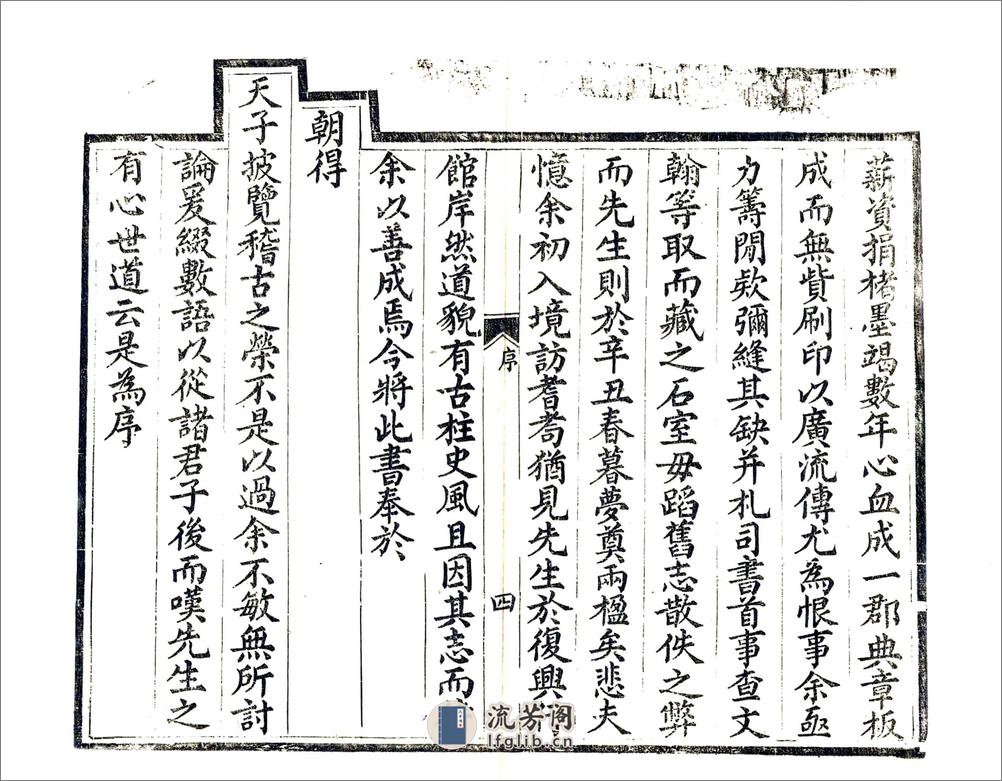 薪資捐楮墨竭數年心血成一郡典章板
成而無貲刷印以廣流傳尤為恨事余亟
力籌閒欵彌縫其缺并札司書首事查文
翰等取而藏之石室毋蹈舊志散佚之弊
而先生則於辛丑春暮夢奠兩楹矣悲夫
憶余初入境訪耆耈猶見先生於復興
序
四
館岸然道貌有古柱史風且因其志而
余以善成焉今將此書奉於
朝得
天子披覽稽古之榮不是以過余不敏無所討
論爰綴數語以從諸君子後而嘆先生之
有心世道云是為序
流芳阁
lfglib.cn